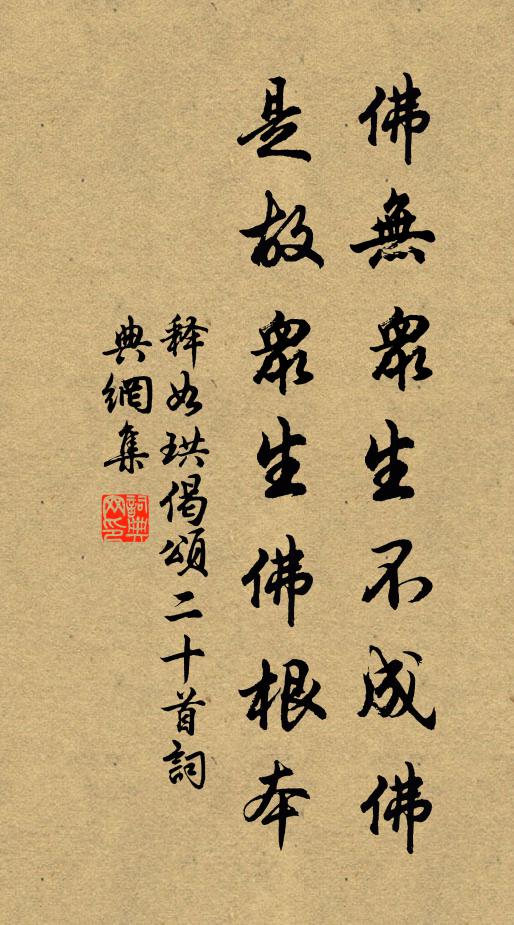 佛無眾生不成佛
是故眾生佛根本
釋如珙偈頌二十首詞
典網集
詞典
网印